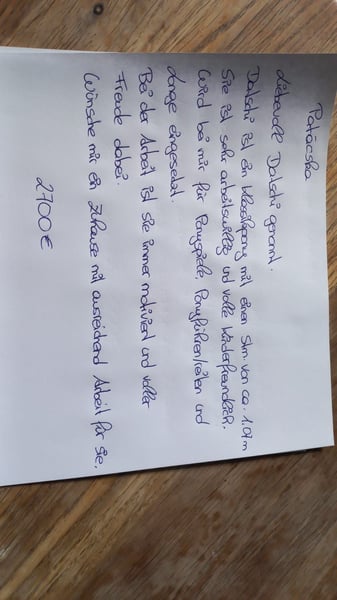 Patacska
Liebevoll Datschi genannt.
Datschi ist ein Klassikpony mit einen Stm von ca. 1.07m
Sie ist sehr arbeitswillig und volle Kinderfreundlich.
Wird bei mir für Ponyspiele Ponyführen/reiten und
Longe eingesetzt.
Bei der Arbeit ist sie immer motiviert und voller
Freude dabei.
Wünsche mir ein Zuhause mit ausreichend Arbeit für sie.
2700€